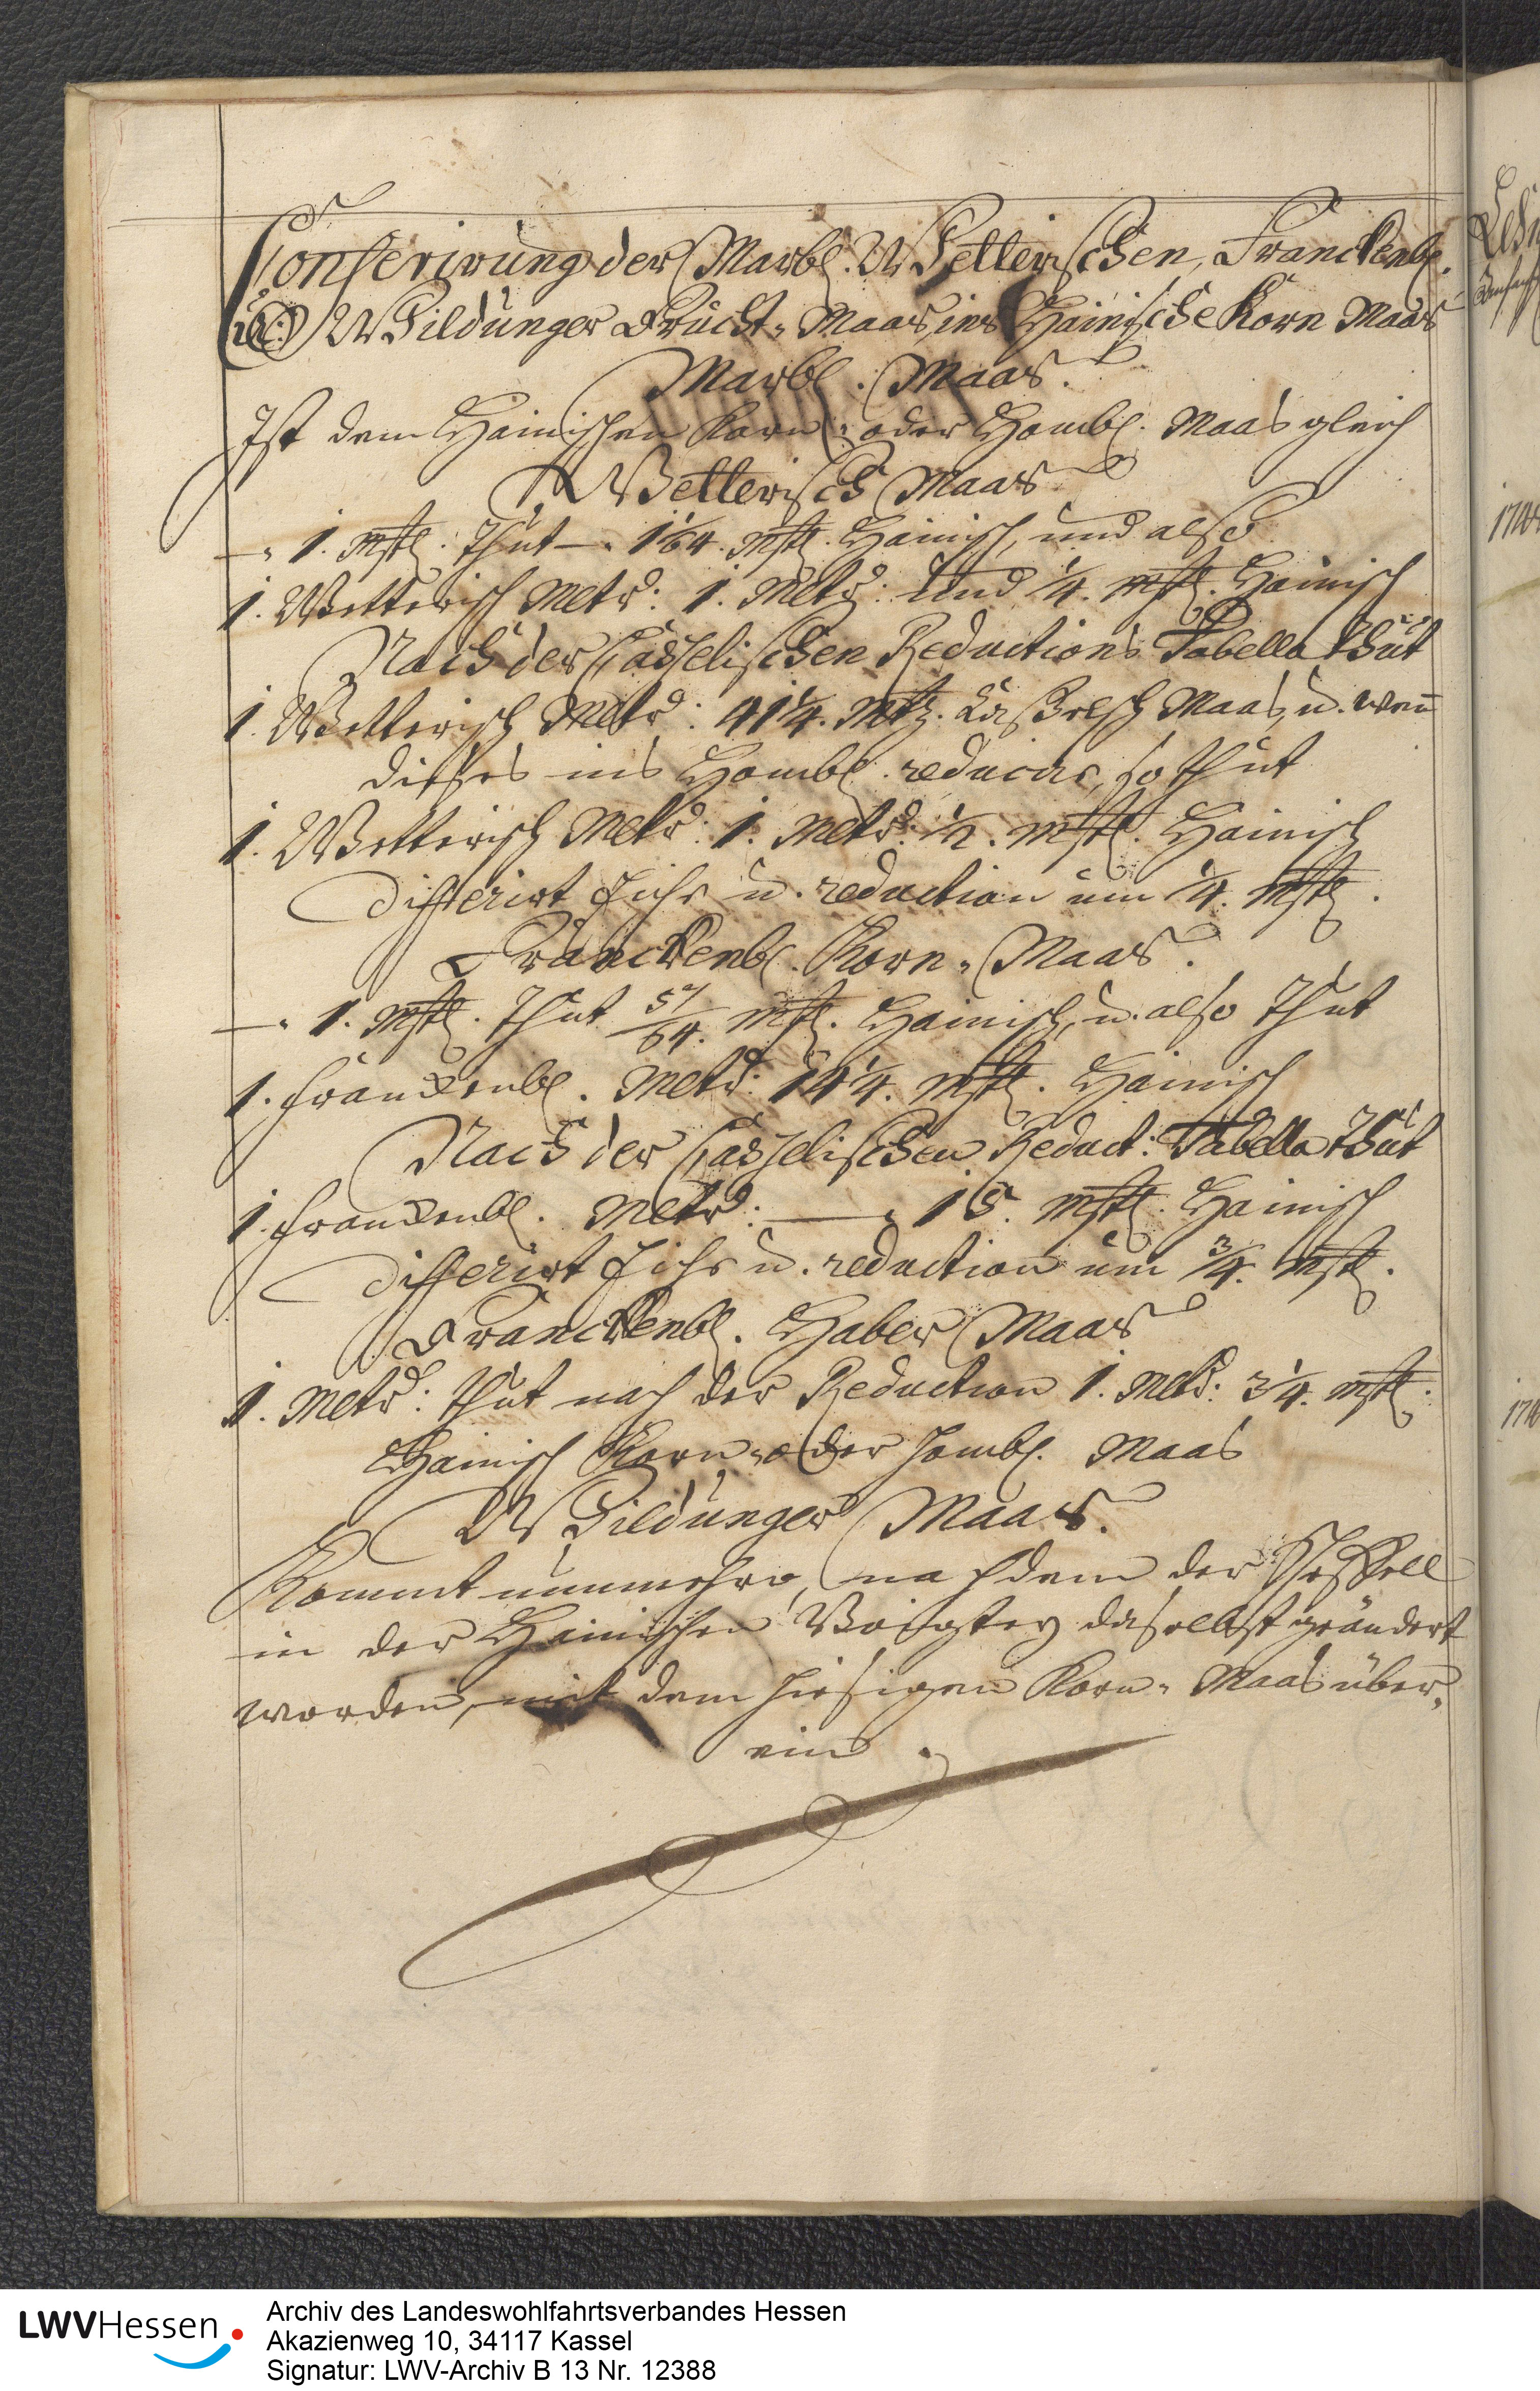 Conferirung der Marb. Wetterischen, Franckenb.
u. Wildunger Frucht-Maas ins Hainische Korn Maas
Marb. Maas.
Ist dem Hainischen Korn- oder Homb. Maas gleich
Wetterisch Maas
—. 1. mst. thut —. 1 1/64. mst. Hainisch, und also
1. Wetterisch Metr: 1. Metr: und 1/4. mst. Hainisch
Nach der Casselischen Reductions Tabella thut
1. Wetterisch Metr: 41 1/4. Mtz. Caßelsch Maas, u. wenn
dieses ins Homb. reducirt, so thut
1. Wetterisch Metr: 1. Metr: 1/2. mst. Hainisch
differirt u. reduction um 1/4. mst.
Franckenb. Korn-Maas.
—. 1. mst. thut 57/64. mst. Hainisch, u. also thut
1. Franckenb. Metr: 14 1/4. mst. Hainisch
Nach der Casselischen Reduct: Tabella thut
1. Franckenb. Metr: —. 15. mst. Hainisch
differirt u. reduction um 3/4. mst.
Franckenb. Haber Maas
1. Metr: thut nach der Reduction 1. Metr: 3 1/4. mst.
Hainisch Korn- oder Homb. Maas
Wildunger Maas.
Kommt nunmehro, nachdem der Scheffell
in der Hainischen Voigtey daselbst geändert
worden, mit dem hiesigen Korn-Maas über-
ein.
1744
LWVHessen
Archiv des Landeswohlfahrtsverbandes Hessen
Akazienweg 10, 34117 Kassel
Signatur: LWV-Archiv B 13 Nr. 12388